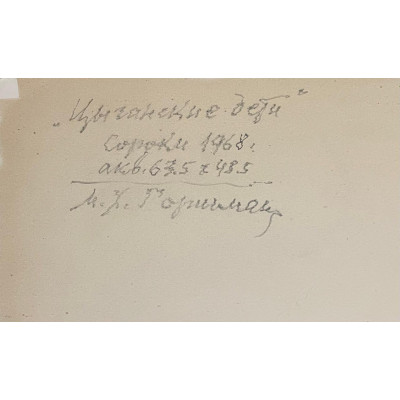 „Цыганские дети"
Сороки 1968.
акв. 63.5 х 48.5